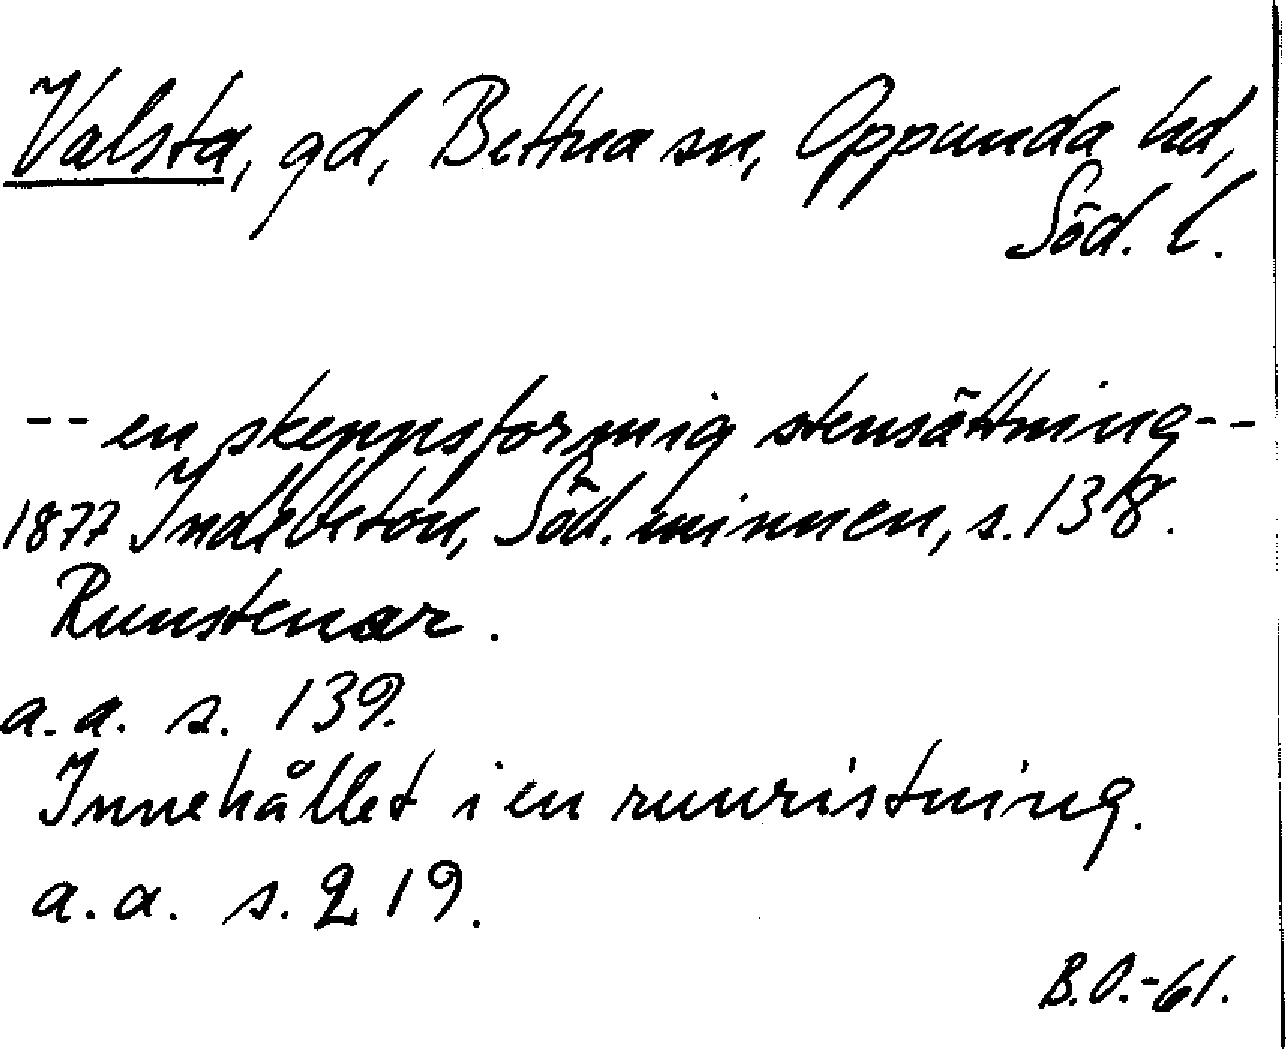 Valsta, gd, Bettna sn, Oppunda hd,
Söd. l.
-- en skeppsformig stensättning --
1877 Indebetou, Söd. minnen, s. 138.
Runstenar.
a.a. s. 139.
Innehållet i en runristning.
a.a. s. 219.
B.O.-61.